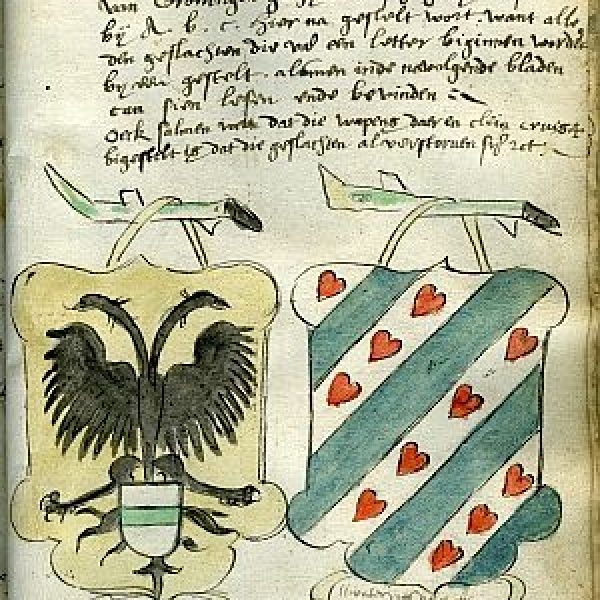 van Groningen
bÿ A. b. c. hier na gestelt wort, want alle
den geslachten die val een letter biginnen worden
bÿ een gestelt. alsmen inde navolgende bladen
can sien lesen ende bevinden
Oock salmen weten dat die wapens daer en clein cruisgen
bigestelt is dat die geslachten al verstorven sijn etc.